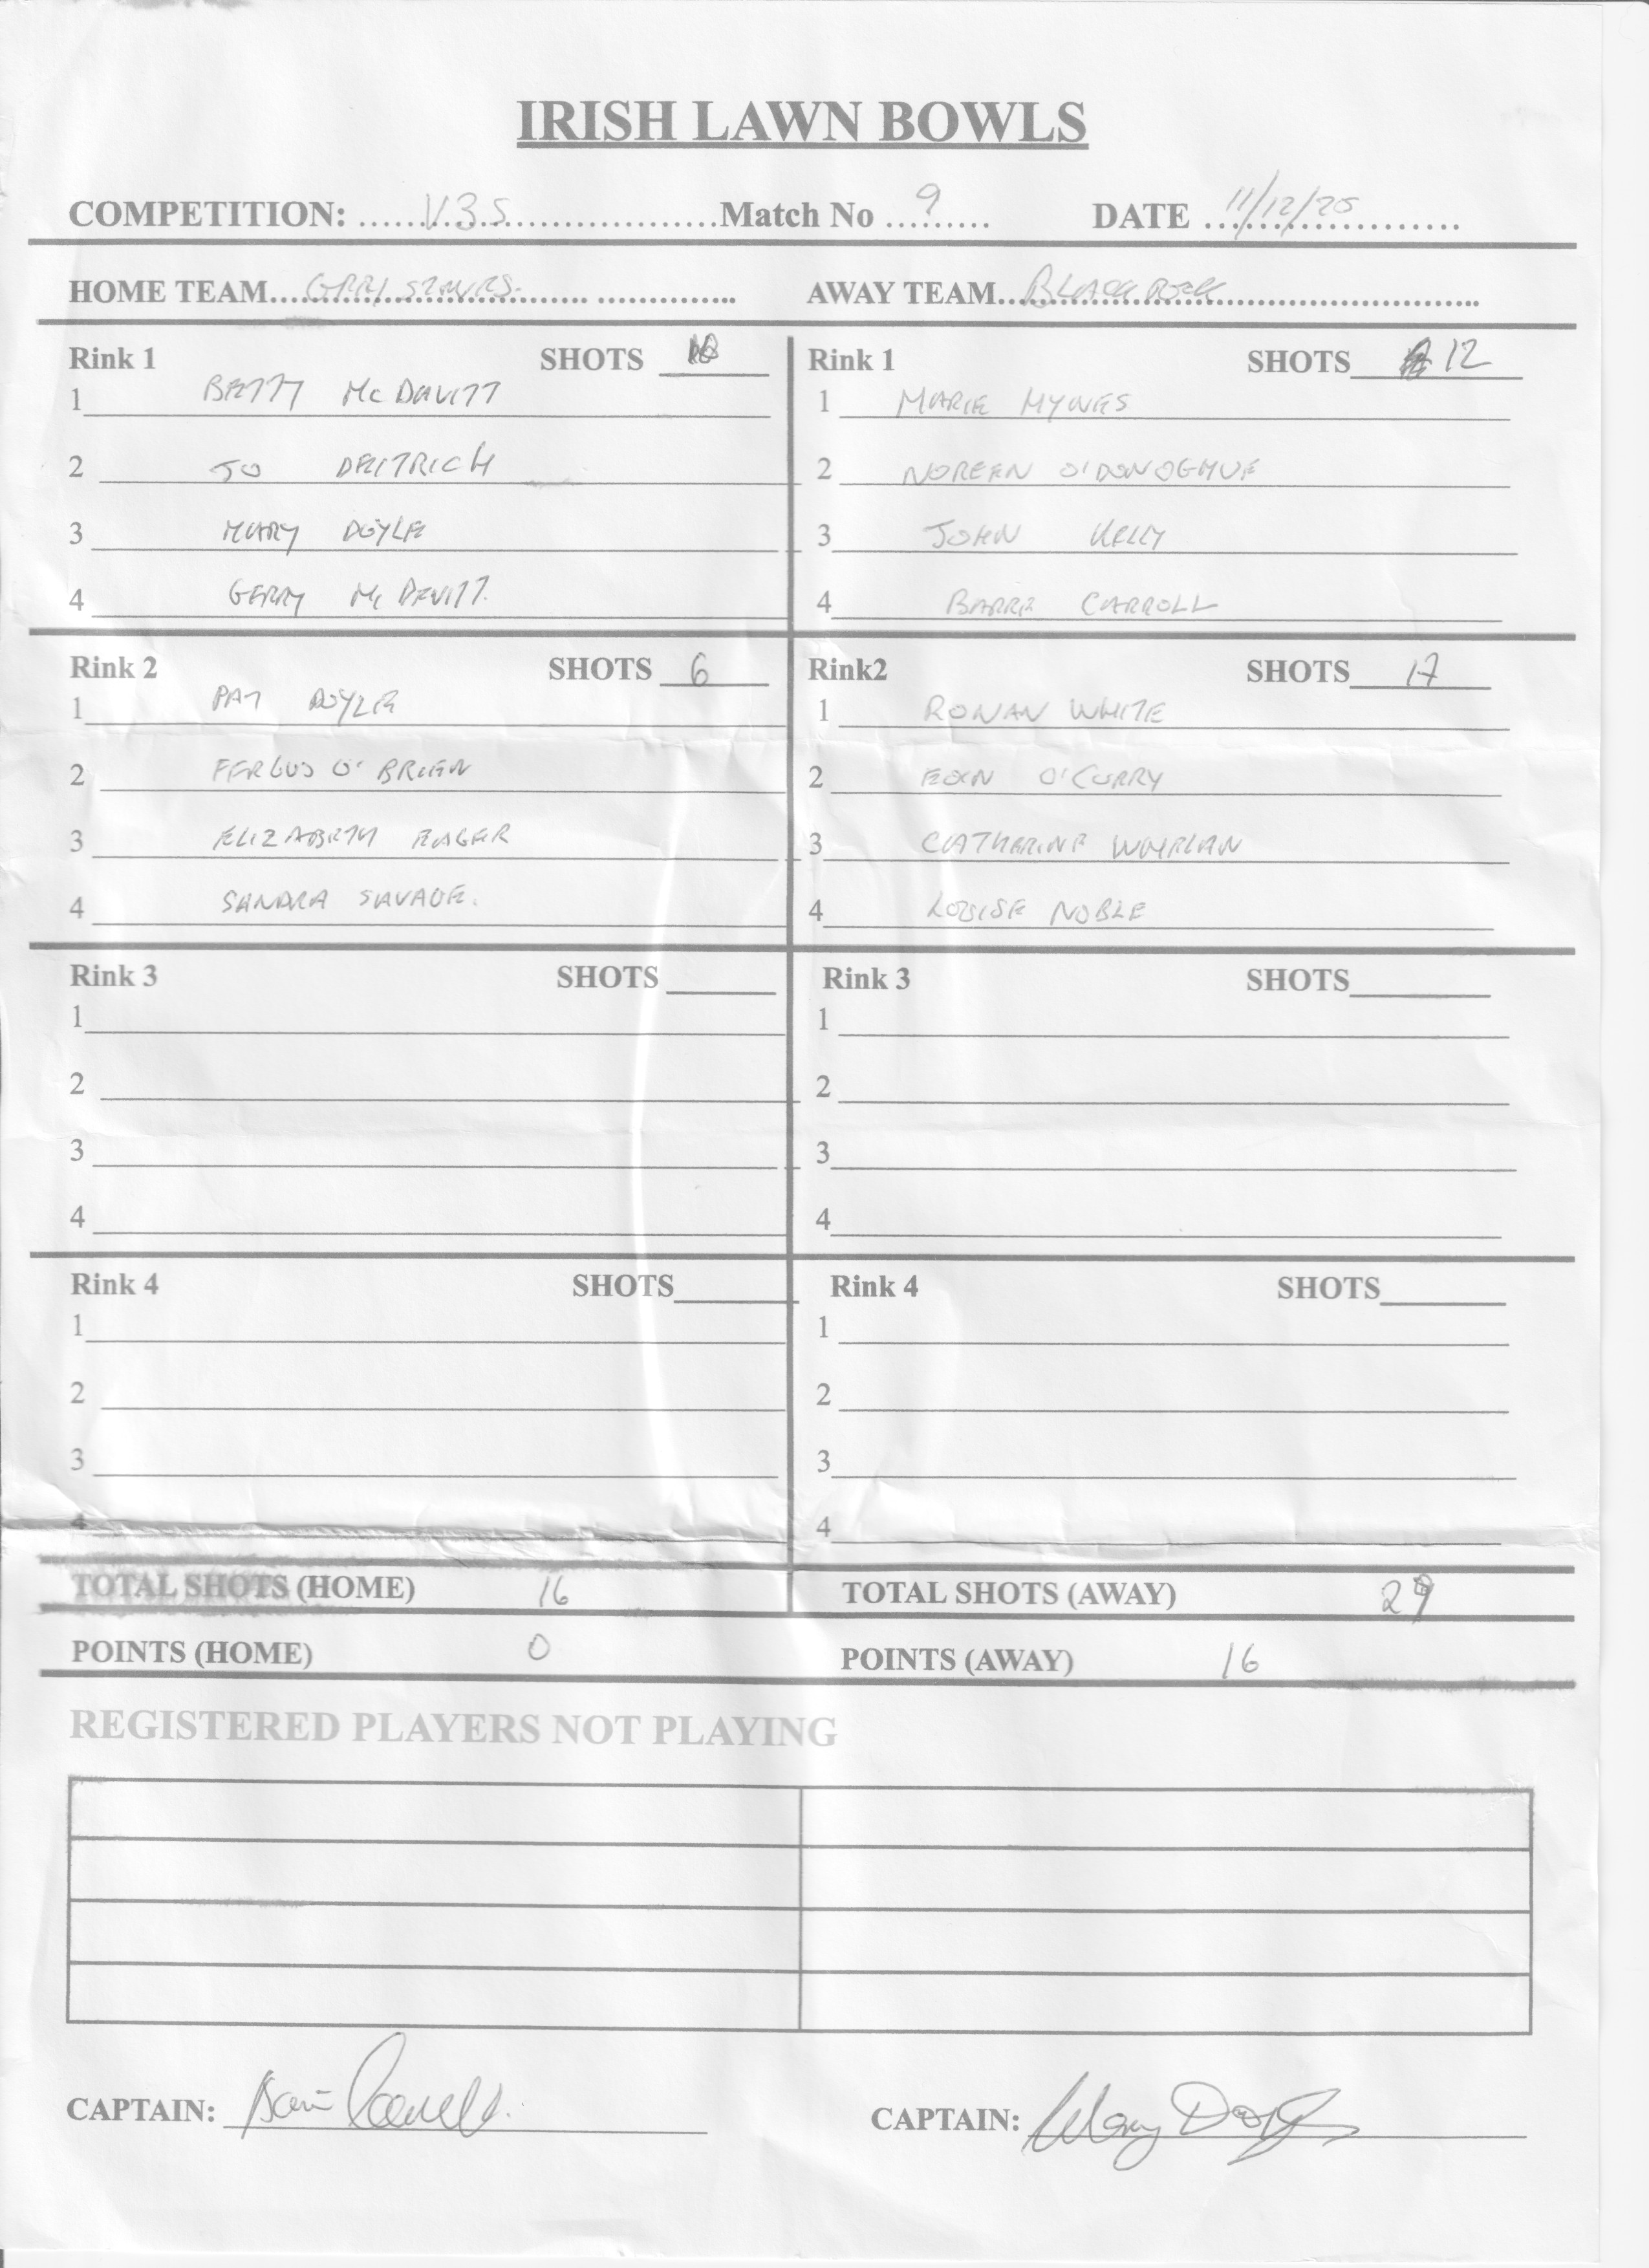 IRISH LAWN BOWLS
COMPETITION: V35 Match No 9 DATE 11/12/25
HOME TEAM AWAY TEAM BLACKROCK
Rink 1 SHOTS 10 Rink 1 SHOTS 12
1 BETTY McDAVITT 1 MARIE HYNES
2 JO DEITRICH 2 NOREEN O'DONOGHUE
3 MARY DOYLE 3 JOHN KELLY
4 GERRY McDEVITT. 4 BARRE CARROLL
Rink 2 SHOTS 6 Rink2 SHOTS 17
1 PAT DOYLE 1 RONAN WHITE
2 FERGUS O'BRIEN 2 EOIN O'CURRY
3 ELIZABETH EAGER 3 CATHERINE WHELAN
4 SANDRA SAVAGE. 4 LOUISE NOBLE
Rink 3 SHOTS Rink 3 SHOTS
1 1
2 2
3 3
4 4
Rink 4 SHOTS Rink 4 SHOTS
1 1
2 2
3 3
4 4
TOTAL SHOTS (HOME) 16 TOTAL SHOTS (AWAY) 29
POINTS (HOME) 0 POINTS (AWAY) 16
REGISTERED PLAYERS NOT PLAYING
CAPTAIN: CAPTAIN: Mary Doyle